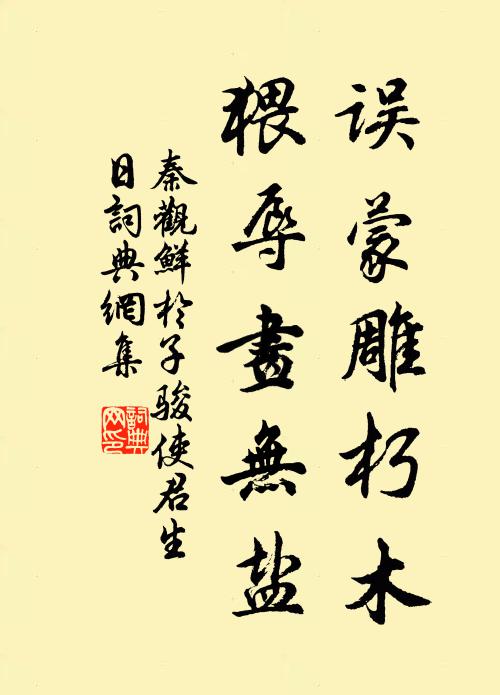 误蒙雕朽木
猥辱畫無盐
秦觀鮮於子駿使君生
日詞典網集
詞典网印